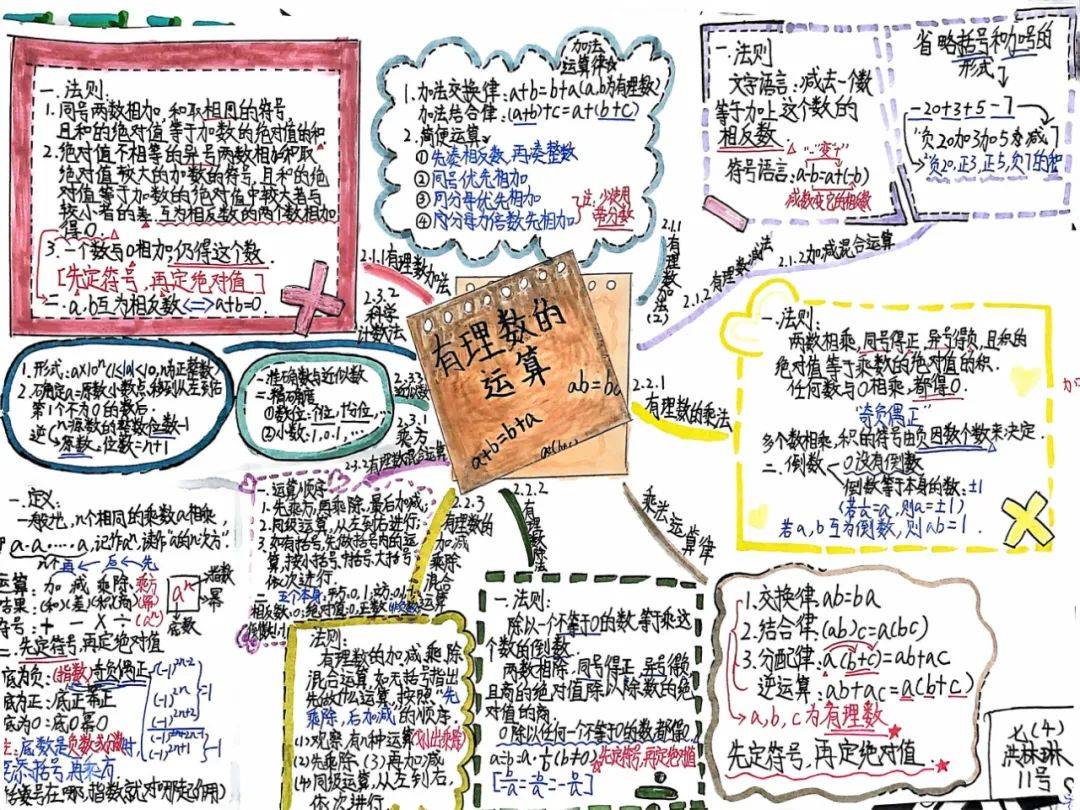 一.法则:
1.同号两数相加,和取相同的符号
且和的绝对值等于加数的绝对值的和
2.绝对值不相等的异号两数相加,和取
绝对值较大的加数的符号,且和的绝
对值等于加数的绝对值中较大者与
较小者的差.互为相反数的两个数相加
得0.
3.一个数与0相加,仍得这个数.
[先定符号,再定绝对值]
二.a.b互为相反数<=>a+b=0.
2.1.1有理数加法
加法
运算律
1.加法交换律:a+b=b+a(a.b为有理数)
加法结合律:(a+b)+c=a+(b+c)
2.简便运算
①先凑相反数,再凑整数
②同号优先相加
③同分母优先相加
④同分母为倍数先相加
注:少使用
带分数
2.1.1
有理数加法
(2)
一.法则
文字语言:减去一个数
等于加上这个数的
相反数.
"-"变"+"
符号语言:a-b=a+(-b)
减数变它的相反数
2.1.2有理数减法
省略括号和加号的
形式
-20+3+5-7
"负20加3加5减7
"负20,正3,正5,负7的和
2.1.2加减混合运算
有理数的
运算
a+b=b+a
2.3.2
科学
计数法
1.形式:a×10ⁿ(1≤|a|<10,n为正整数)
2.确定a=原数小数点移到从左到右
第1个不为0的数后.
n=原数的整数位数-1
逆
原数,位数=n+1
2.3.3
近似数
一.准确数与近似数
二.精确度
①数位:个位,十分位,...
②小数:1,0.1,...
2.2.1
有理数的乘法
一.法则:
两数相乘,同号得正,异号得负,且积的
绝对值等于乘数的绝对值的积.
任何数与0相乘,都得0.
"奇负偶正"
多个数相乘,积的符号由负因数个数来决定.
二.倒数
0没有倒数
倒数等于本身的数:±1
若a,b互为倒数,则ab=1.
2.3.1
乘方
一.定义:
n个相同的乘数a相乘,
a·a·····a,记作aⁿ,读作"a的n次方"
n个
运算:加 减 乘 除 乘方
结果:(和)(差)(积)(商)(幂)
符号:+ - × ÷ (aⁿ)
aⁿ
指数
幂
底数
二.先定符号,再定绝对值
底为负:(指数)奇负偶正
底为正:底正幂正
底为0:底0幂0
2.3.2有理数混合运算
一.运算顺序
1.先乘方,再乘除,最后加减;
2.同级运算,从左到右进行;
3.如有括号,先做括号内的运
算,按小括号.中括号.大括号
依次进行.
2.2.3
有理数的
加减
乘除
混合
运算
法则:
有理数的加减乘除
混合运算,如无括号指出
先做什么运算,按照"先
乘除,后加减"的顺序.
(2)先乘除,(3)再加减
(4)同级运算,从左到右,
依次进行.
2.2.2
有理数除法
一.法则:
除以一个不等于0的数,等于乘这
个数的倒数.
两数相除,同号得正,异号得负
且商的绝对值除以除数的绝
对值的商.
0除以任何一个不等于0的数,都得0.
a÷b=a·1/b(b≠0)
先定符号,再定绝对值
乘法运算律
1.交换律:ab=ba
2.结合律:(ab)c=a(bc)
3.分配律:a(b+c)=ab+ac
逆运算:ab+ac=a(b+c)
a,b,c为有理数
先定符号,再定绝对值.
七(4)
洪林琳
11号